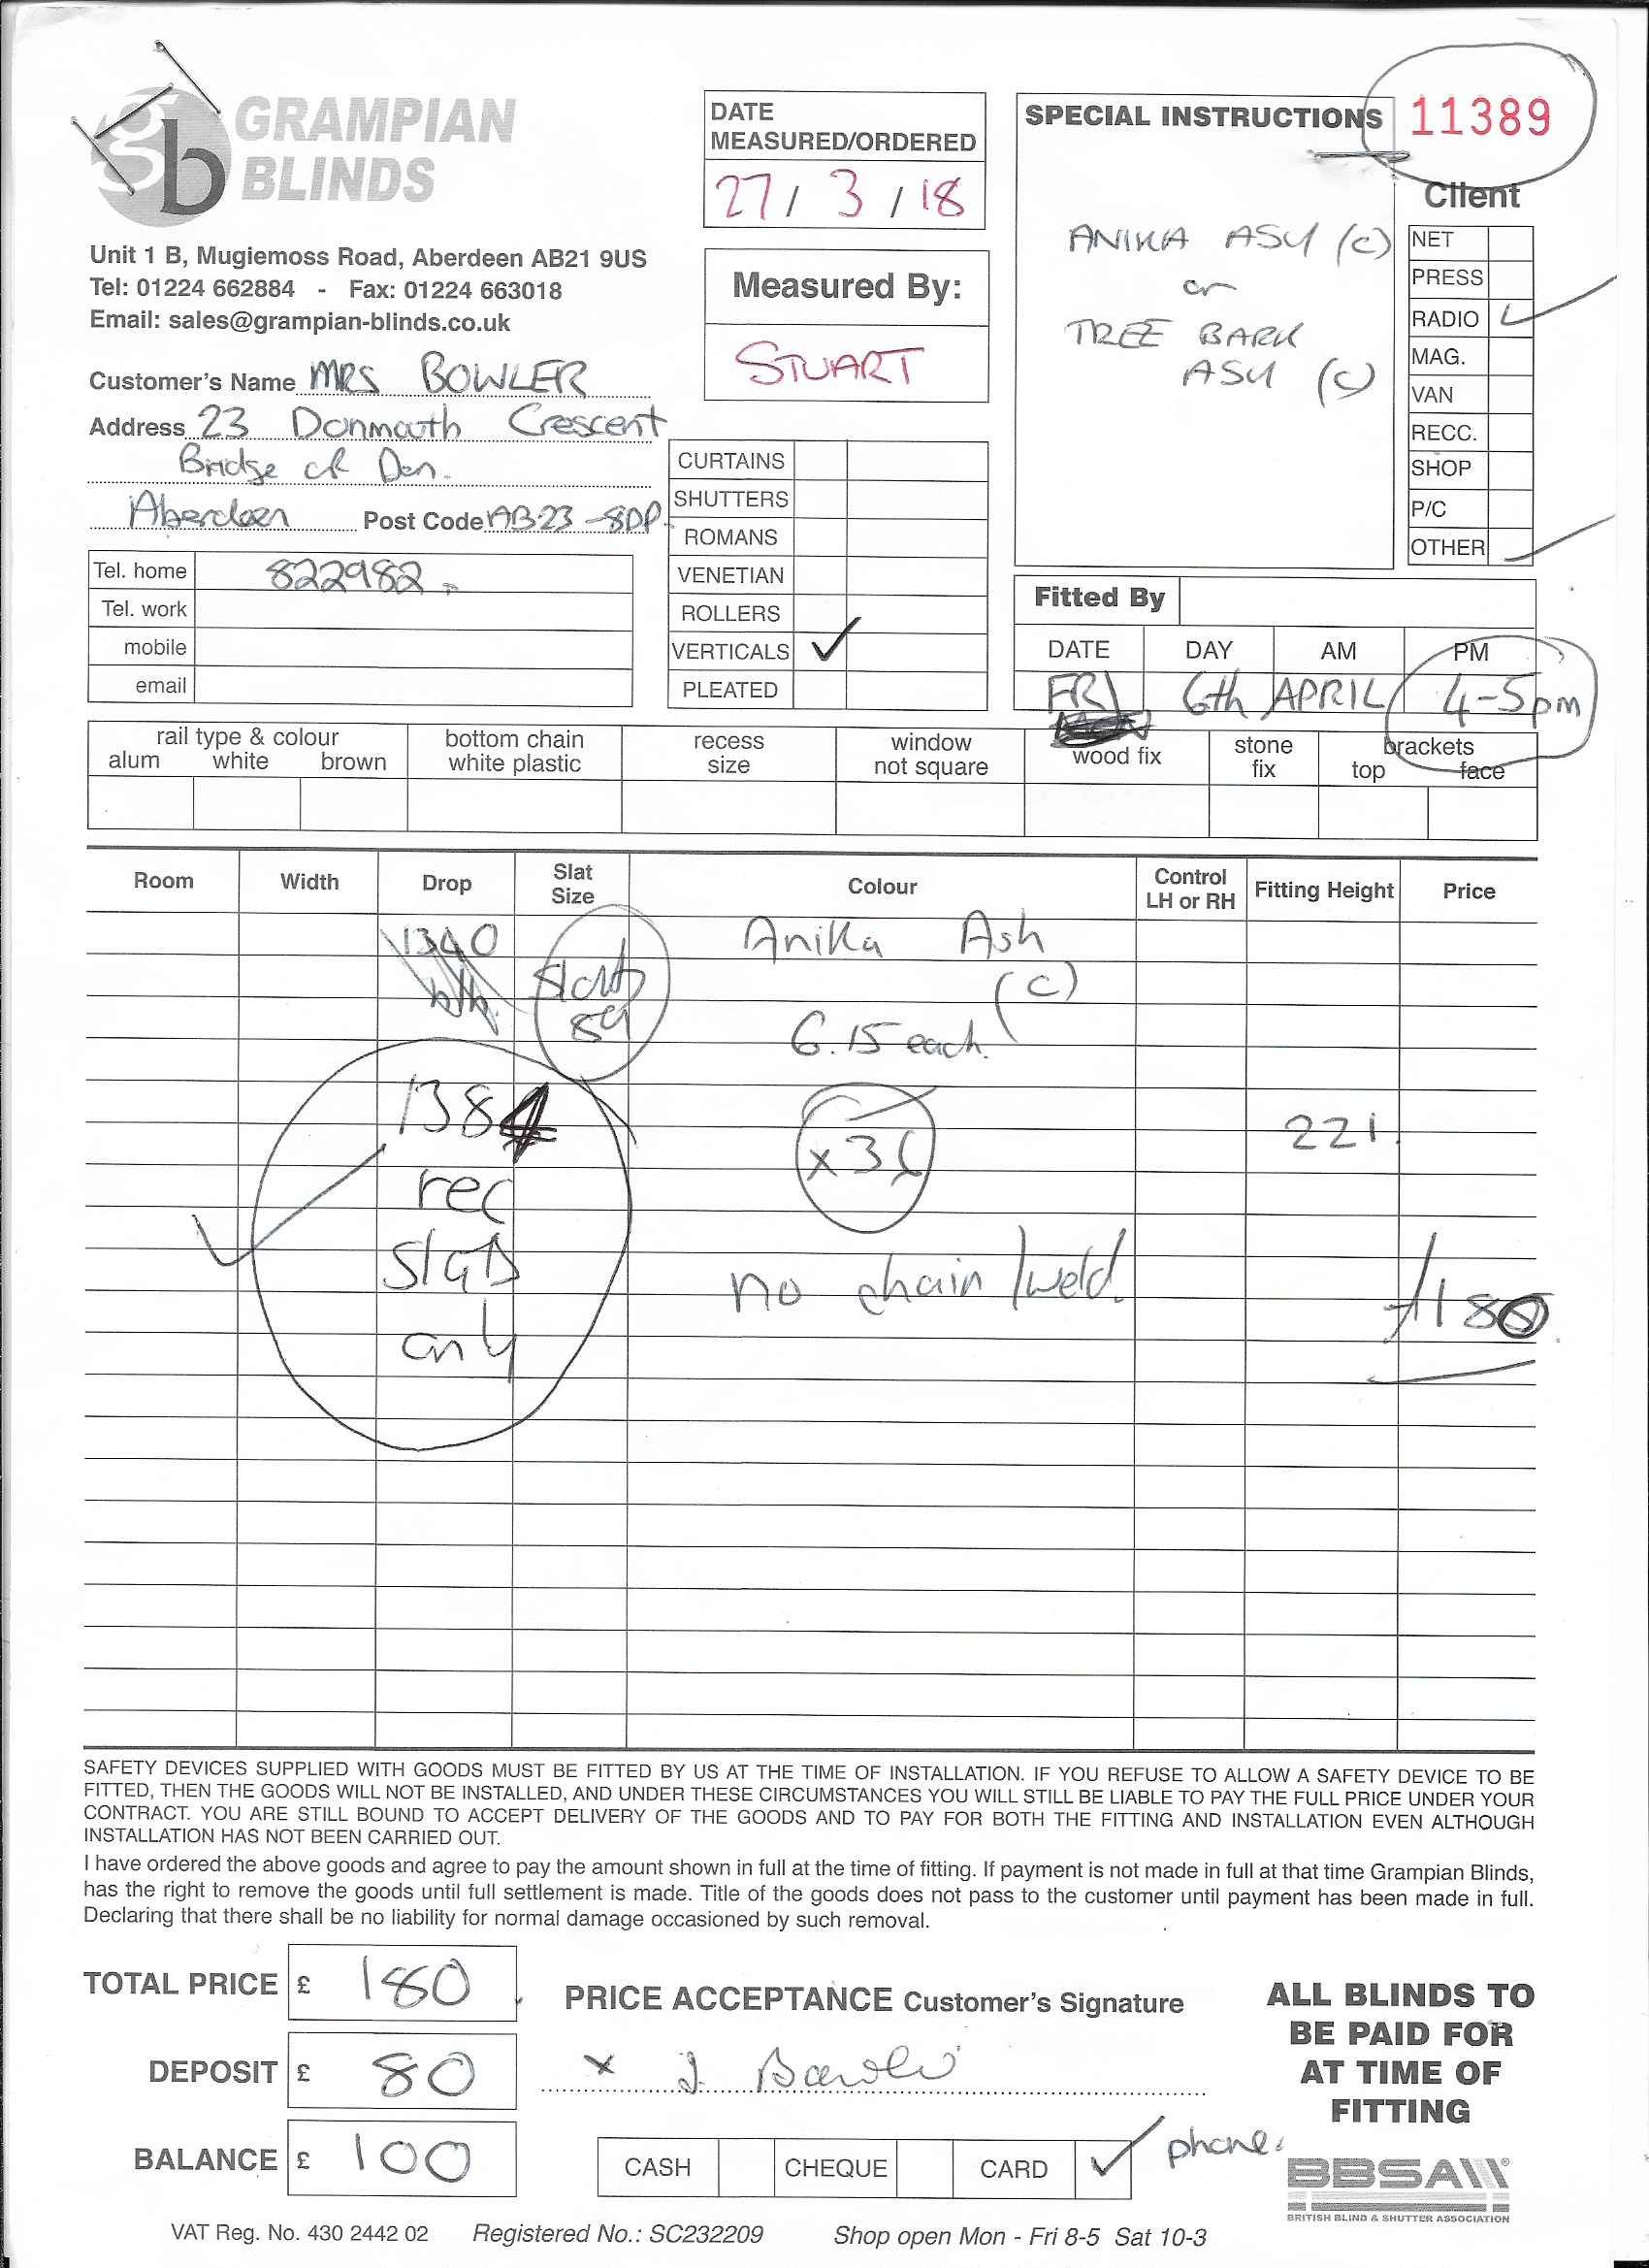 gb GRAMPIAN
BLINDS
Unit 1 B, Mugiemoss Road, Aberdeen AB21 9US
Tel: 01224 662884 - Fax: 01224 663018
Email: sales@grampian-blinds.co.uk
Customer's Name MRS BOWLER
Address 23 Donmouth Crescent
Bridge of Don.
Aberdeen Post Code AB23 - 8DP
Tel. home 822982
Tel. work
mobile
email
DATE
MEASURED/ORDERED
27 / 3 / 18
Measured By:
STUART
CURTAINS
SHUTTERS
ROMANS
VENETIAN
ROLLERS
VERTICALS ✓
PLEATED
SPECIAL INSTRUCTIONS
ANIKA ASH (C)
or
TREE BARK
ASH (C)
11389
Client
NET
PRESS
RADIO
MAG.
VAN
RECC.
SHOP
P/C
OTHER
Fitted By
DATE DAY AM PM
FRI 6th APRIL 4-5pm
rail type & colour
alum white brown
bottom chain
white plastic
recess
size
window
not square
wood fix
stone
fix
brackets
top face
Room Width Drop Slat Size Colour Control LH or RH Fitting Height Price
1340 Anika Ash
slats (C)
89 6.15 each.
1384 221
x 36
rec
slats no chain/weld. £180
only
SAFETY DEVICES SUPPLIED WITH GOODS MUST BE FITTED BY US AT THE TIME OF INSTALLATION. IF YOU REFUSE TO ALLOW A SAFETY DEVICE TO BE
FITTED, THEN THE GOODS WILL NOT BE INSTALLED, AND UNDER THESE CIRCUMSTANCES YOU WILL STILL BE LIABLE TO PAY THE FULL PRICE UNDER YOUR
CONTRACT. YOU ARE STILL BOUND TO ACCEPT DELIVERY OF THE GOODS AND TO PAY FOR BOTH THE FITTING AND INSTALLATION EVEN ALTHOUGH
INSTALLATION HAS NOT BEEN CARRIED OUT.
I have ordered the above goods and agree to pay the amount shown in full at the time of fitting. If payment is not made in full at that time Grampian Blinds,
has the right to remove the goods until full settlement is made. Title of the goods does not pass to the customer until payment has been made in full.
Declaring that there shall be no liability for normal damage occasioned by such removal.
TOTAL PRICE £ 180
DEPOSIT £ 80
BALANCE £ 100
PRICE ACCEPTANCE Customer's Signature
x J. Bowler
CASH CHEQUE CARD ✓ phone.
ALL BLINDS TO
BE PAID FOR
AT TIME OF
FITTING
BBSA
BRITISH BLIND & SHUTTER ASSOCIATION
VAT Reg. No. 430 2442 02 Registered No.: SC232209 Shop open Mon - Fri 8-5 Sat 10-3